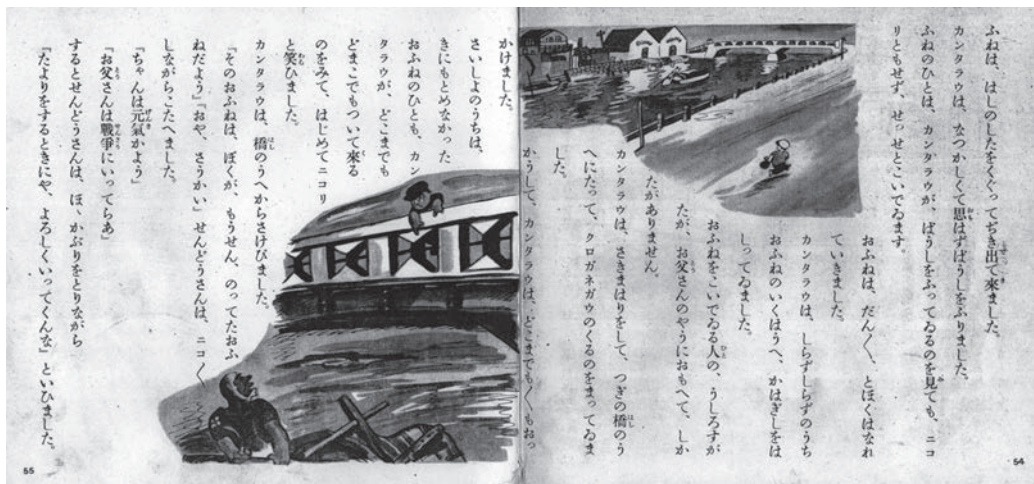 ふねは、はしのしたをくぐってぢき出て來ました。
カンタラウは、なつかしくて思はずばうしをふりました、
ふねのひとは、カンタラウが、ばうしをふってゐるのを見ても、ニコ
リともせず、せっせとこいでゐます。
おふねは、だん〱、とほくはなれ
ていきました。
カンタラウは、しらずしらずのうち
おふねのいくはうへ、かはぎしをは
しってゐました。
おふねをこいでゐる人の、うしろすが
たが、お父さんのやうにおもへて、しか
たがありません。
カンタラウは、さきまはりをして、つぎの橋のう
へにたって、クロガネガウのくるのをまってゐま
した。
かうして、カンタラウは、どこまでも〱もおっ
54
かけました。
さいしよのうちは、
きにもとめなかった
おふねのひとも、カン
タラウが、どこまでも
どまこでもついて來る
のをみて、はじめてニコリ
と笑ひました。
カンタラウは、橋のうへからさけびました。
『そのおふねは、ぼくが、もうせん、のってたおふ
ねだよう』『おや、さうかい』せんどうさんは、ニコ〱
しながらこたへました。
『ちゃんは元氣かよう』
『お父さんは戰爭にいってらあ』
するとせんどうさんは、ほゝかぶりをとりながら
『たよりをするときにや、よろしくいってくんな』といひました。
55